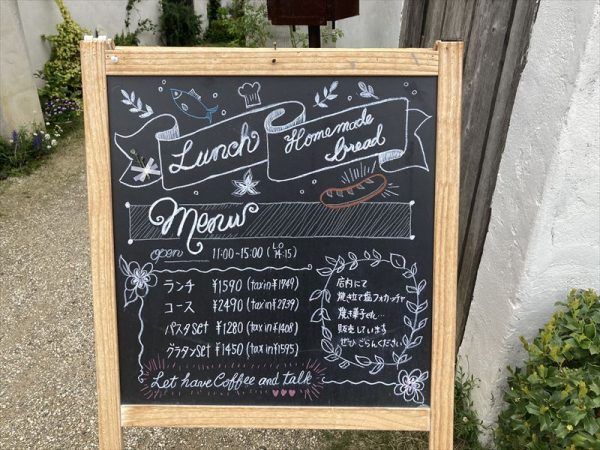 Lunch
Homemade bread
Menu
open 11:00-15:00 (LO 14:15)
ランチ ¥1590 (tax in ¥1749)
コース ¥2490 (tax in ¥2739)
パスタset ¥1280 (tax in ¥1408)
グラタンset ¥1450 (tax in ¥1595)
店内にて
焼き立て塩フォカッチャ
焼き菓子など…
販売しています
ぜひごらんください
Let have Coffee and talk